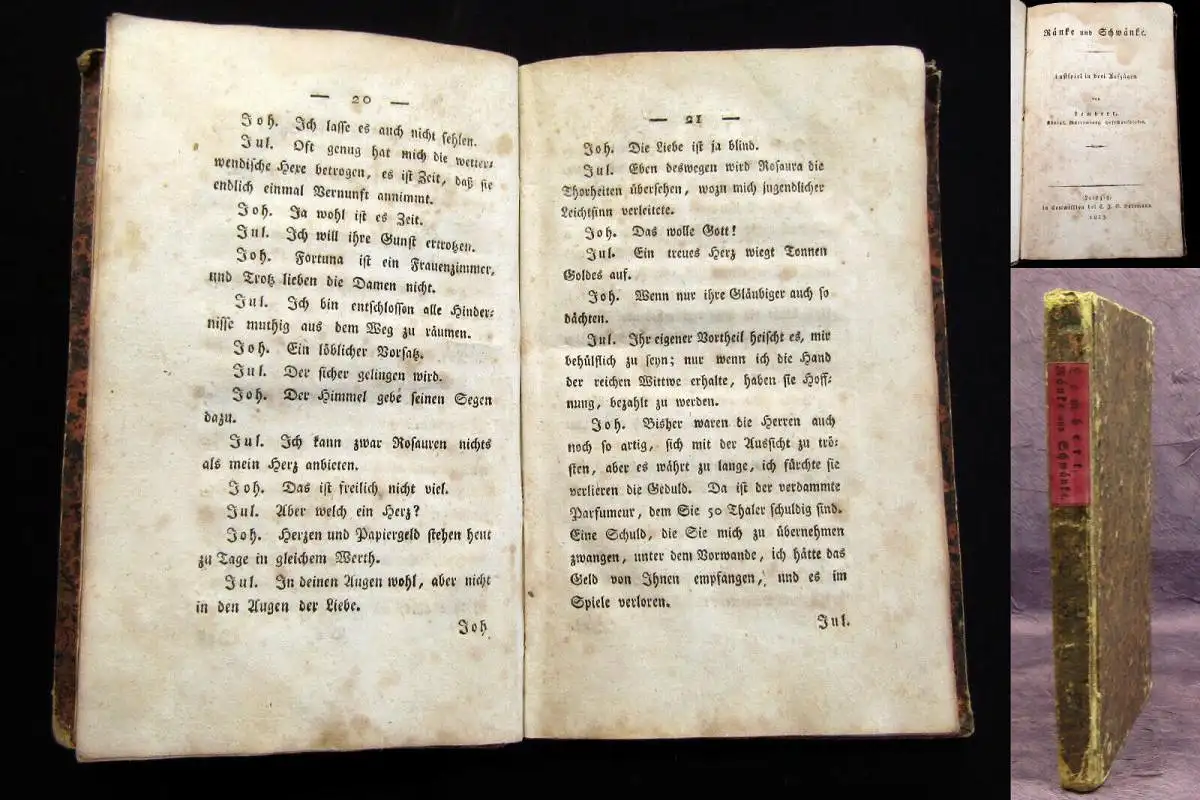 — 20 —
Joh. Ich lasse es auch nicht fehlen.
Jul. Oft genug hat mich die wetter-
wendische Hexe betrogen, es ist Zeit, daß sie
endlich einmal Vernunft annimmt.
Joh. Ja wohl ist es Zeit.
Jul. Ich will ihre Gunst ertrotzen.
Joh. Fortuna ist ein Frauenzimmer,
und Trotz lieben die Damen nicht.
Jul. Ich bin entschlossen alle Hinder-
nisse muthig aus dem Weg zu räumen.
Joh. Ein löblicher Vorsatz.
Jul. Der sicher gelingen wird.
Joh. Der Himmel gebe seinen Segen
dazu.
Jul. Ich kann zwar Rosauren nichts
als mein Herz anbieten.
Joh. Das ist freilich nicht viel.
Jul. Aber welch ein Herz?
Joh. Herzen und Papiergeld stehen heut
zu Tage in gleichem Werth.
Jul. In deinen Augen wohl, aber nicht
in den Augen der Liebe.
Joh
— 21 —
Joh. Die Liebe ist ja blind.
Jul. Eben deswegen wird Rosaura die
Thorheiten übersehen, wozu mich jugendlicher
Leichtsinn verleitete.
Joh. Das wolle Gott!
Jul. Ein treues Herz wiegt Tonnen
Goldes auf.
Joh. Wenn nur ihre Gläubiger auch so
dächten.
Jul. Ihr eigener Vortheil heischt es, mir
behülflich zu seyn; nur wenn ich die Hand
der reichen Wittwe erhalte, haben sie Hoff-
nung, bezahlt zu werden.
Joh. Bisher waren die Herren auch
noch so artig, sich mit der Aussicht zu trö-
sten, aber es währt zu lange, ich fürchte sie
verlieren die Geduld. Da ist der verdammte
Parfumeur, dem Sie 50 Thaler schuldig sind.
Eine Schuld, die Sie mich zu übernehmen
zwangen, unter dem Vorwande, ich hätte das
Geld von Ihnen empfangen, und es im
Spiele verloren.
Jul.
Ränke und Schwänke.
Lustspiel in drei Aufzügen
von
Lembert,
Königl. Würtemberg. Hofschauspieler.
Leipzig,
in Commission bei
1813
Lembert
Ränke und Schwänke.